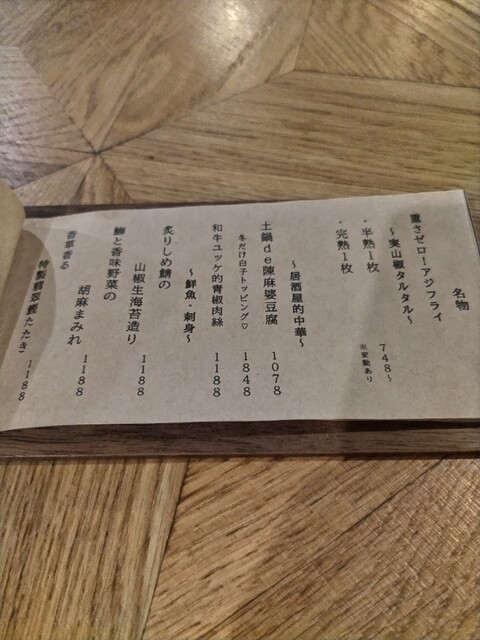 名物
重さゼロ！アジフライ
〜実山椒タルタル〜
・半熟1枚
748〜
・完熟1枚
※変動あり
〜居酒屋的中華〜
土鍋de陳麻婆豆腐 1078
冬だけ白子トッピング♡ 1848
和牛ユッケ的青椒肉絲 1188
〜鮮魚・刺身〜
炙りしめ鯖の
山椒生海苔造り 1188
鰤と香味野菜の
胡麻まみれ 1188
香草香る
特製翡翠鰹たたき 1188